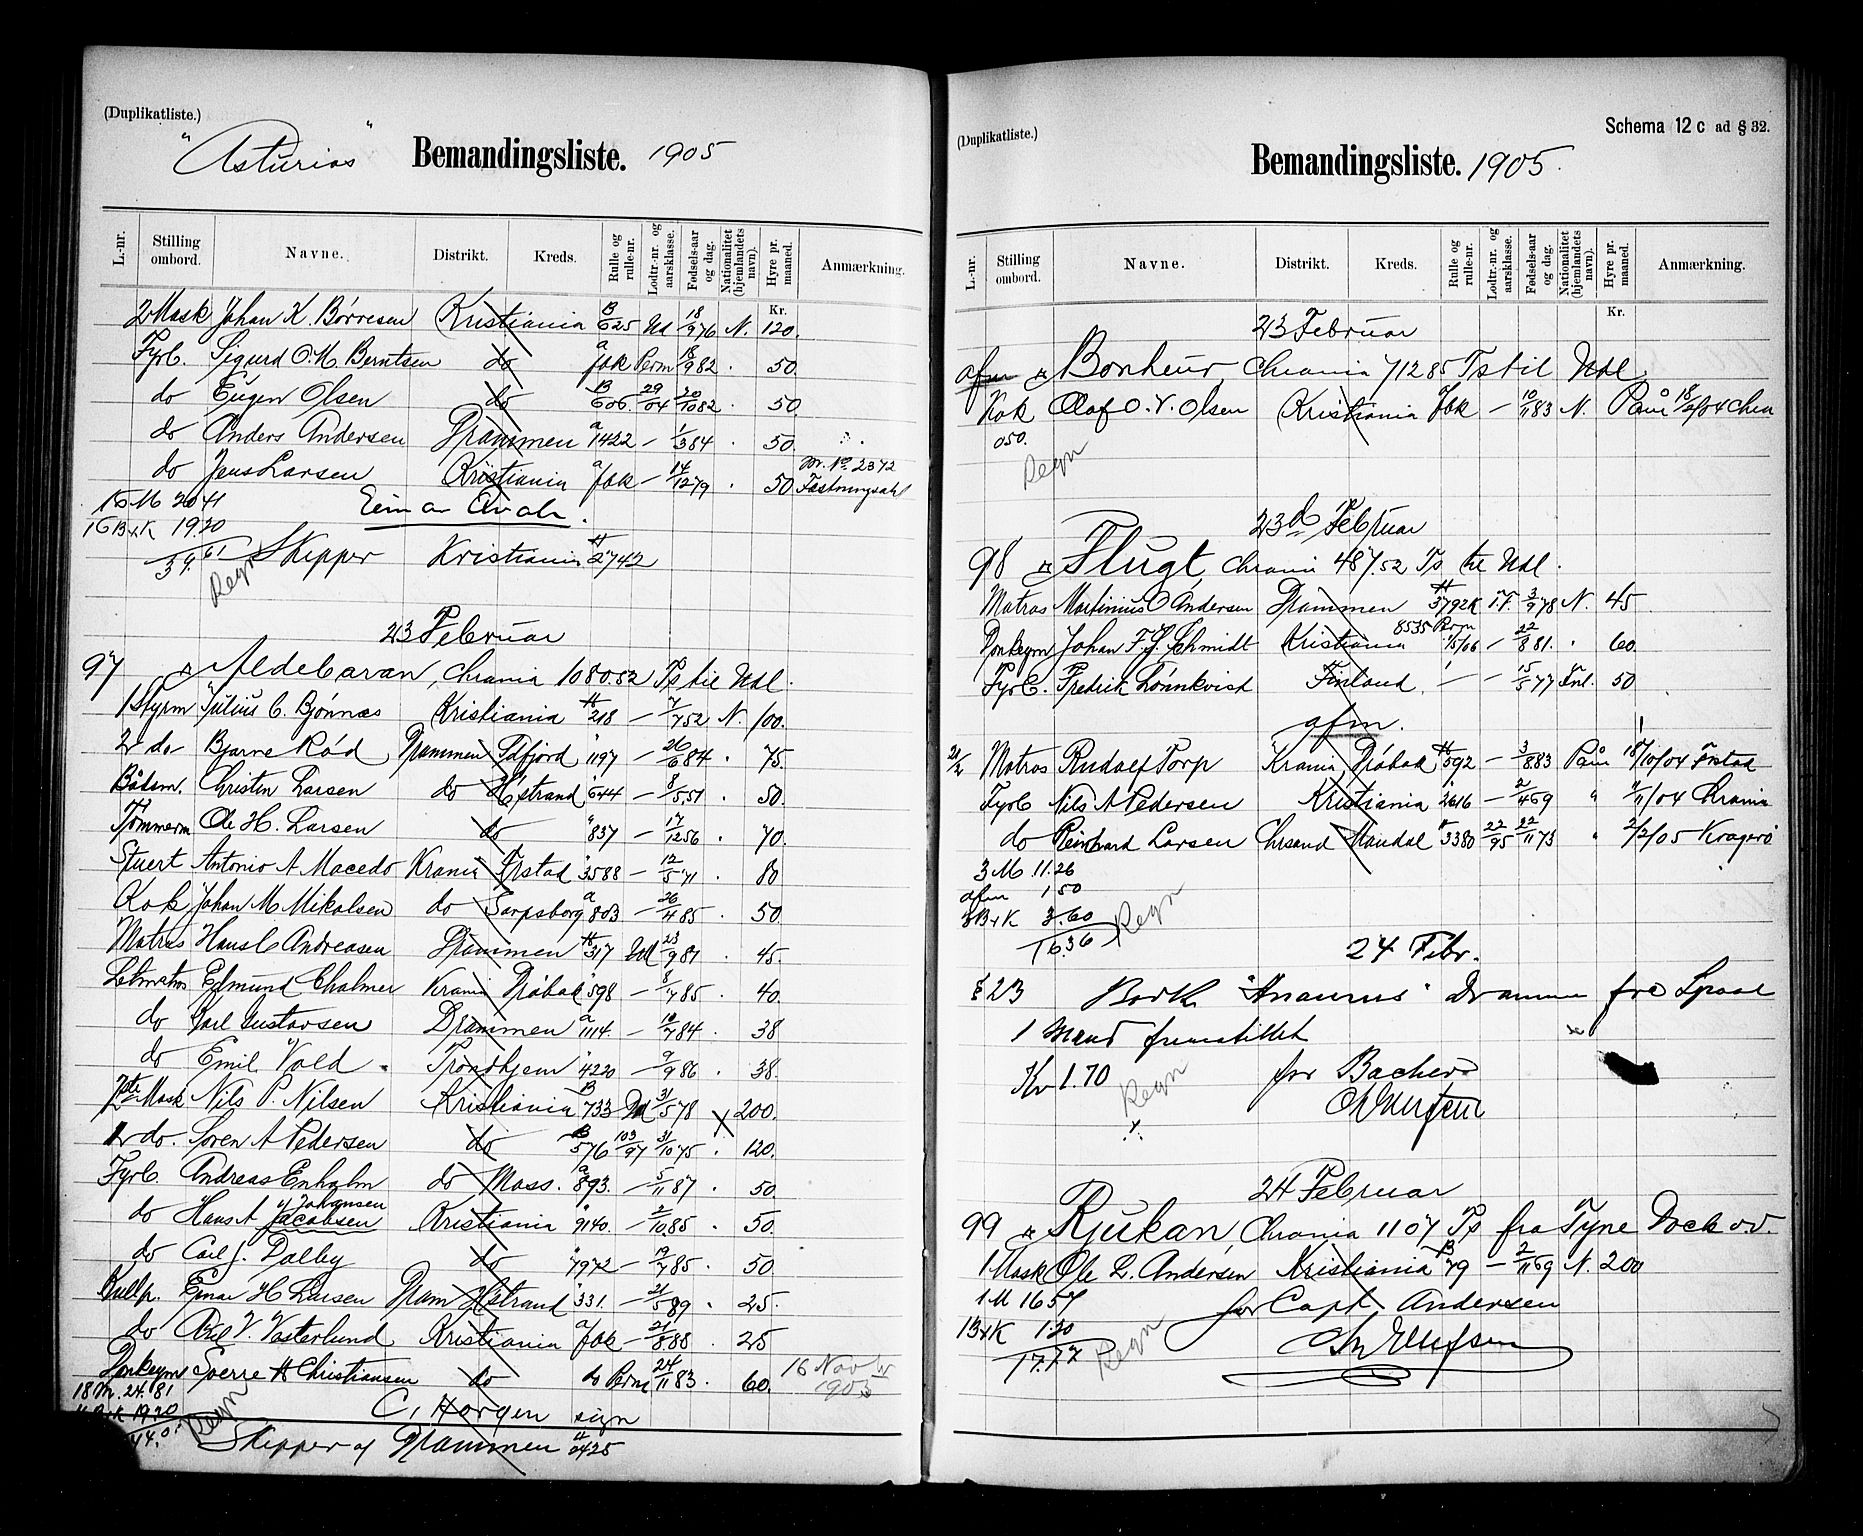 (Duplikatliste.)
"Asturias" Bemandingsliste. 1905
L.-nr. Stilling ombord. Navne. Distrikt. Kreds. Rulle og rulle-nr. Lodtr.-nr. og aarsklasse. Fødsels-aar og dag. Nationalitet (hjemlandets navn). Hyre pr. maaned. Anmærkning.
Kr.
2 Mask Johan K. Børresen Kristiania B 625 Ud 18/9 76 N. 120.
Fyrb. Sigurd O. M. Berntsen do a fbk Perm 18/9 82 . 50.
do Eugen Olsen do B 606. 29/04 20/10 82 . 50.
do Anders Andersen Drammen a 1422 – 1/3 84 . 50.
do Jens Larsen Kristiania a fbk – 14/12 79 . 50 Nr. 2372
15 M 20 41
16 B+K 19.20
39.61 Skipper Kristiania H 2742
Regn
23 Februar
97 Aldebaran, Chrania 1080.52 Ts til Udl.
1 Styrm Julius C. Bjønnæs Kristiania H 218 – 7/7 52 N. 100.
2 do Bjarne Rød Drammen Tdfjord " 1197 – 26/6 84 . 75.
Bådsm. Christin Larsen do H'strand " 644 – 8/5 51 . 50.
Tømmerm Ole H. Larsen do " 837 – 17/12 56 . 70.
Stuert Antonio A Macedo Krania Frstad " 3588 – 12/5 71 . 80
Kok Johan M Mikalsen do Sarpsborg a 803 – 26/4 85 . 50.
Matros Hans C Andreasen Drammen H 317 Ud 23/9 81 . 45.
Letmatros Edmund Chalmer Krania Drøbak " 598 – 8/7 85 . 40.
do Karl Gustavsen Drammen a 1114. – 10/7 84 . 38
do Emil Vold Trondhjem " 4220 – 9/9 86 . 38.
1ste Mask Nils P. Nilsen Kristiania B 733 Ud 31/5 78 X 200.
2 do. Soren A Pedersen do B 576 103/97 31/10 75 . 120.
Fyrb. Andreas Enholm do Moss. a 893. – 5/11 87 . 50.
Johansen
do Hans A Jacobsen Kristiania " 9140. – 2/10 85 . 50.
do Carl J. Dalby do " 7972 – 19/7 85 . 50.
Kullp. Einar H Larsen Dram H'strand " 331. – 21/5 89 . 25.
do Axel V. Vesterlund Kristiania a fbk – 21/8 88 . 25
Donkeym Sverre H Christiansen do do Perm 24/11 83 . 60. 16 Novbr 1903
18 M. 24.81
C. Horgen sign
Regn Skipper af Drammen H 0425
(Duplikatliste.)
Schema 12 c ad § 32.
Bemandingsliste. 1905.
L.-nr. Stilling ombord. Navne. Distrikt. Kreds. Rulle og rulle-nr. Lodtr.-nr. og aarsklasse. Fødsels-aar og dag. Nationalitet (hjemlandets navn). Hyre pr. maaned. Anmærkning.
Kr.
23 Februar
afm Bonheur, Chrania 712 85 Ts til Udl
Kok Olaf O. V. Olsen Kristiania fbk – 10/11 83 N. Påm 18/2/04 Chra
050.
Regn
23de Februar
98 Flugt, Chrania 487.52 Ts til Udl.
Matros Martinius O Andersen Drammen H 3792K T.F. 3/9 78 N. 45
Donkeym Johan F. J. Schmidt Kristiania 8535 Perm 1/5/06 – 22/8 81. " 60.
Fyrb. Fredrik Lönnkvist Finland – – 15/5 77 Fnl. 50
afm.
21/2 Matros Rudolf Torp Krania, Drøbak H 592 – 3/8 83 Påm 18/10/04 Frstad
Fyrb Nils A Pedersen Kristiania " 2616 – 2/4 69 " 2/11/04 Chrania
do Reinhard Larsen Chrsand Mandal H 3380 22/95 22/11 73 " 2/2/05 Kragerö
3 M 11.26
afm 1 50
3 B+K 3.60
16.36 Regn
24 Febr.
§ 23 Bark "Anaurus" Drammen fra
1 Mand fremstillet
Kr 1.70 for Bacherd
Regn
24 Februar
99 Rjukan, Chrania 1107 Ts fra Tyne Dock o.v.
1 Mask Ole L. Andersen Kristiania B 79 – 2/11 69 N. 200
1 M 16 57 for Capt. Andersen
1 B+K 1.20
17.77 Regn